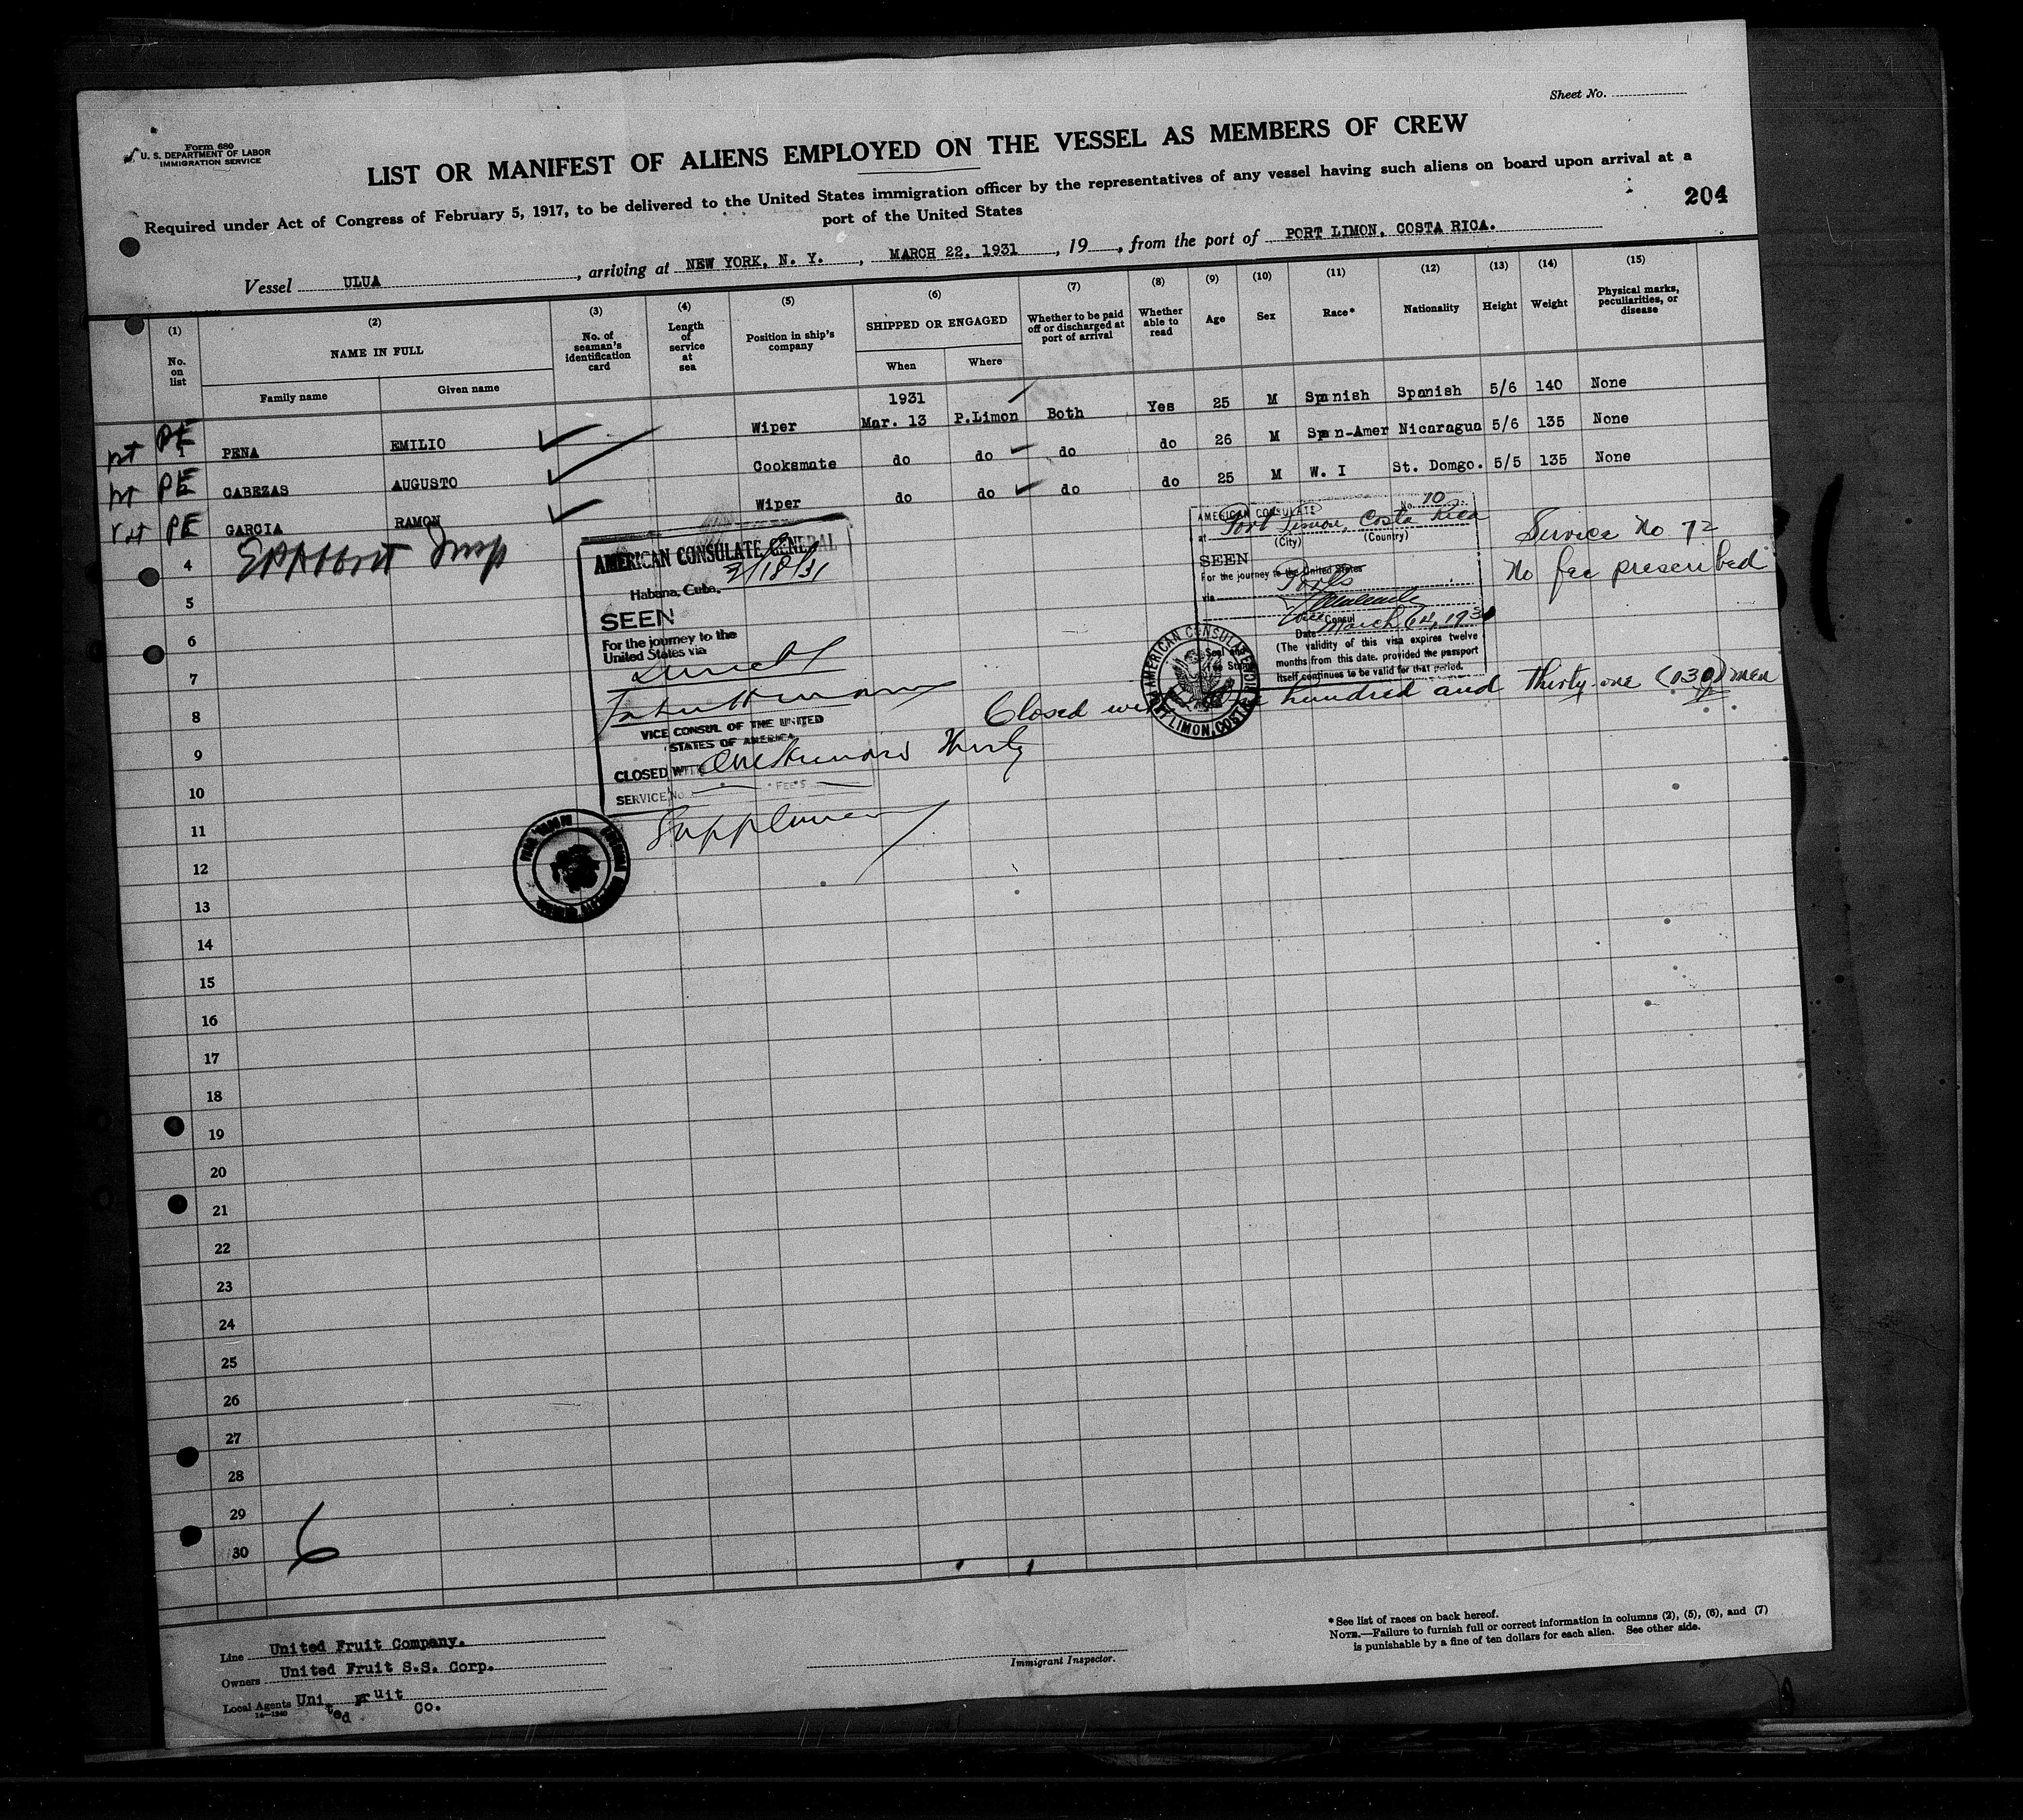 Sheet No.
Form 680
U. S. DEPARTMENT OF LABOR
IMMIGRATION SERVICE
LIST OR MANIFEST OF ALIENS EMPLOYED ON THE VESSEL AS MEMBERS OF CREW
Required under Act of Congress of February 5, 1917, to be delivered to the United States immigration officer by the representatives of any vessel having such aliens on board upon arrival at a
port of the United States
204
Vessel ULUA, arriving at NEW YORK, N. Y., MARCH 22, 1931, 19, from the port of PORT LIMON, COSTA RICA.
(1) (2) (3) (4) (5) (6) (7) (8) (9) (10) (11) (12) (13) (14) (15)
No. on list
NAME IN FULL
Family name Given name
No. of seaman's identification card
Length of service at sea
Position in ship's company
SHIPPED OR ENGAGED
When Where
Whether to be paid off or discharged at port of arrival
Whether able to read
Age
Sex
Race*
Nationality
Height
Weight
Physical marks, peculiarities, or disease
1931
PE 1 PENA EMILIO Wiper Mar. 13 P.Limon Both Yes 25 M Spanish Spanish 5/6 140 None
PE CABEZAS AUGUSTO Cooksmate do do do do 26 M Span-Amer Nicaragua 5/6 135 None
PE GARCIA RAMON Wiper do do do do 25 M W. I St. Domgo. 5/5 135 None
4
5
6
7
8
9
10
11
12
13
14
15
16
17
18
19
20
21
22
23
24
25
26
27
28
29
30
6
AMERICAN CONSULATE GENERAL
Habana, Cuba, 3/18/31
SEEN
For the journey to the
United States via
Direct
VICE CONSUL OF THE UNITED
STATES OF AMERICA
CLOSED WITH One Hundred Thirty
SERVICE No. FEE $
AMERICAN CONSULATE No. 10
at Port Limon, Costa Rica
(City) (Country)
SEEN
For the journey to the United States
via Ports
Vice Consul
Date March 14, 1931
(The validity of this visa expires twelve
months from this date, provided the passport
itself continues to be valid for that period.
AMERICAN CONSULATE
PORT LIMON, COSTA RICA
Service No 72
No fee prescribed
Closed with one hundred and thirty-one men
Line United Fruit Company.
Owners United Fruit S.S. Corp.
Local Agents United Fruit Co.
14—1240
Immigrant Inspector.
*See list of races on back hereof.
NOTE.—Failure to furnish full or correct information in columns (2), (5), (6), and (7)
is punishable by a fine of ten dollars for each alien. See other side.